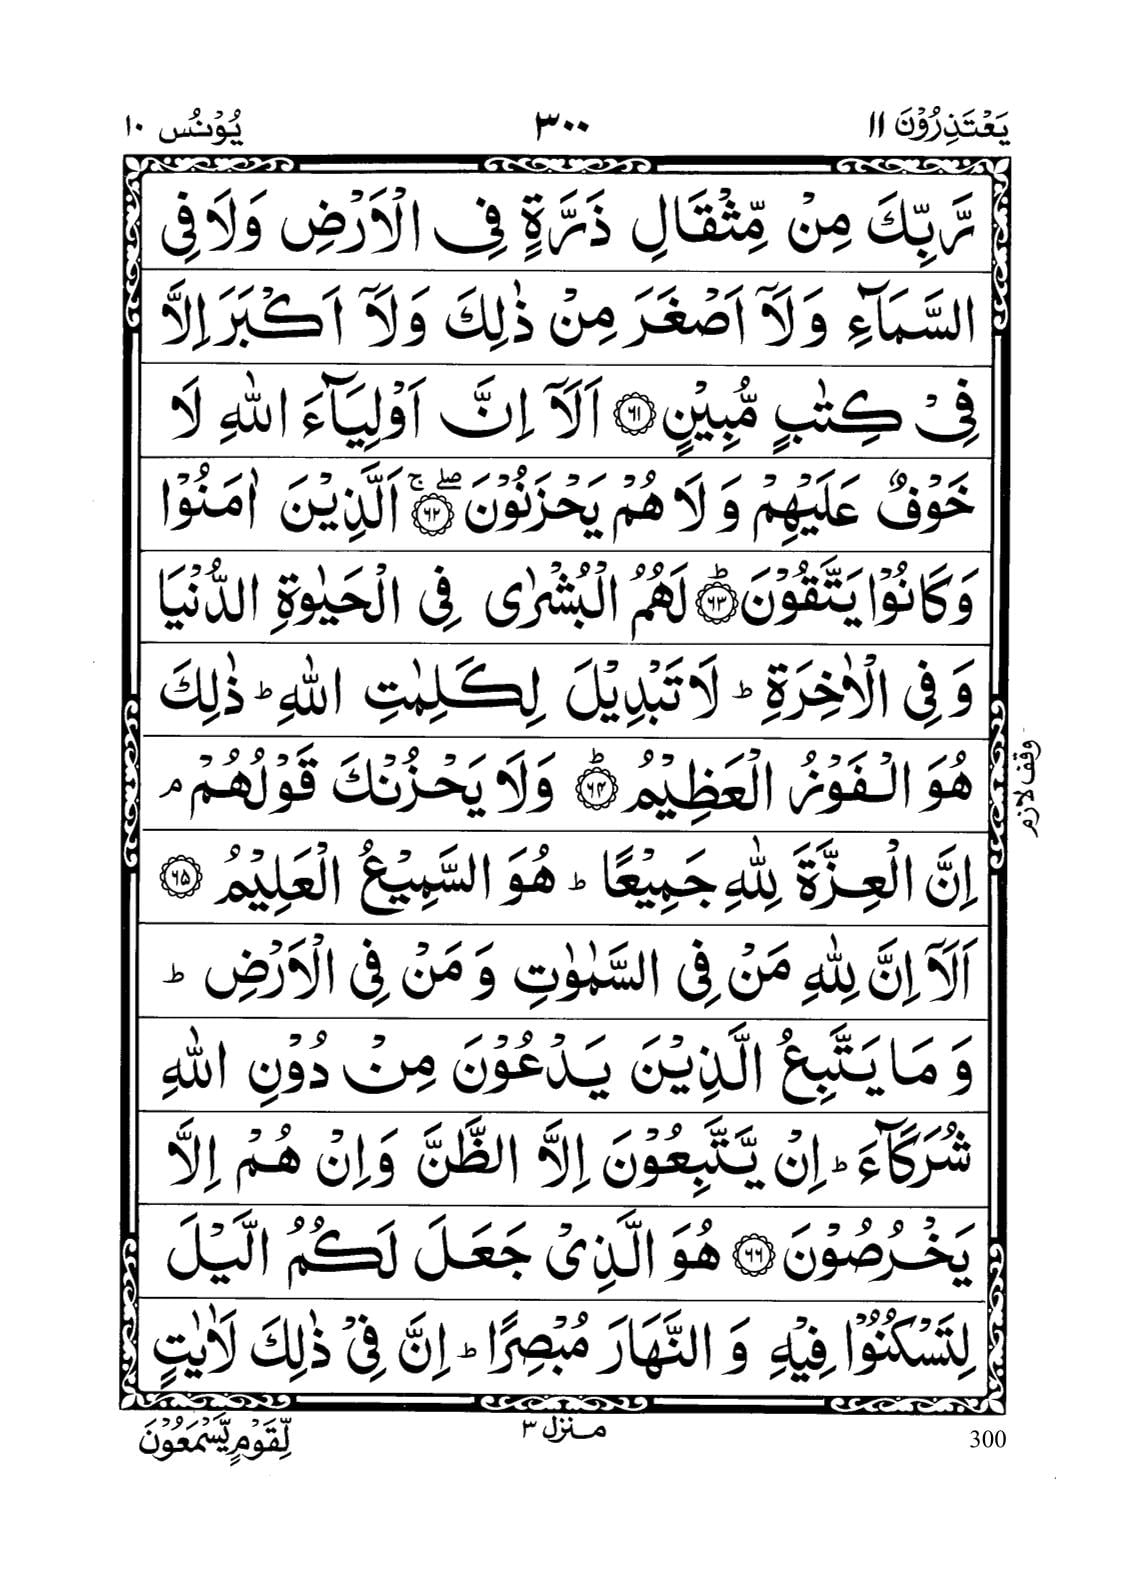 يَعْتَذِرُوْنَ ١١
٣٠٠
يُوْنُس ١٠
رَّبِّكَ مِنْ مِّثْقَالِ ذَرَّةٍ فِى الْاَرْضِ وَلَا فِى
السَّمَآءِ وَلَاۤ اَصْغَرَ مِنْ ذٰلِكَ وَلَاۤ اَكْبَرَ اِلَّا
فِىْ كِتٰبٍ مُّبِيْنٍ ﴿۶۱﴾ اَلَاۤ اِنَّ اَوْلِيَآءَ اللّٰهِ لَا
خَوْفٌ عَلَيْهِمْ وَلَا هُمْ يَحْزَنُوْنَ ﴿۶۲﴾ ۖۚ اَلَّذِيْنَ اٰمَنُوْا
وَكَانُوْا يَتَّقُوْنَ ﴿۶۳﴾ ؕ لَهُمُ الْبُشْرٰى فِى الْحَيٰوةِ الدُّنْيَا
وَفِى الْاٰخِرَةِ ؕ لَا تَبْدِيْلَ لِكَلِمٰتِ اللّٰهِ ؕ ذٰلِكَ
هُوَ الْفَوْزُ الْعَظِيْمُ ﴿۶۴﴾ ؕ وَلَا يَحْزُنْكَ قَوْلُهُمْ ۘ
وقف لازم
اِنَّ الْعِزَّةَ لِلّٰهِ جَمِيْعًا ؕ هُوَ السَّمِيْعُ الْعَلِيْمُ ﴿۶۵﴾
اَلَاۤ اِنَّ لِلّٰهِ مَنْ فِى السَّمٰوٰتِ وَمَنْ فِى الْاَرْضِ ؕ
وَمَا يَتَّبِعُ الَّذِيْنَ يَدْعُوْنَ مِنْ دُوْنِ اللّٰهِ
شُرَكَآءَ ؕ اِنْ يَّتَّبِعُوْنَ اِلَّا الظَّنَّ وَاِنْ هُمْ اِلَّا
يَخْرُصُوْنَ ﴿۶۶﴾ هُوَ الَّذِىْ جَعَلَ لَكُمُ الَّيْلَ
لِتَسْكُنُوْا فِيْهِ وَالنَّهَارَ مُبْصِرًا ؕ اِنَّ فِىْ ذٰلِكَ لَاٰيٰتٍ
لِّقَوْمٍ يَّسْمَعُوْنَ
منزل ٣
300